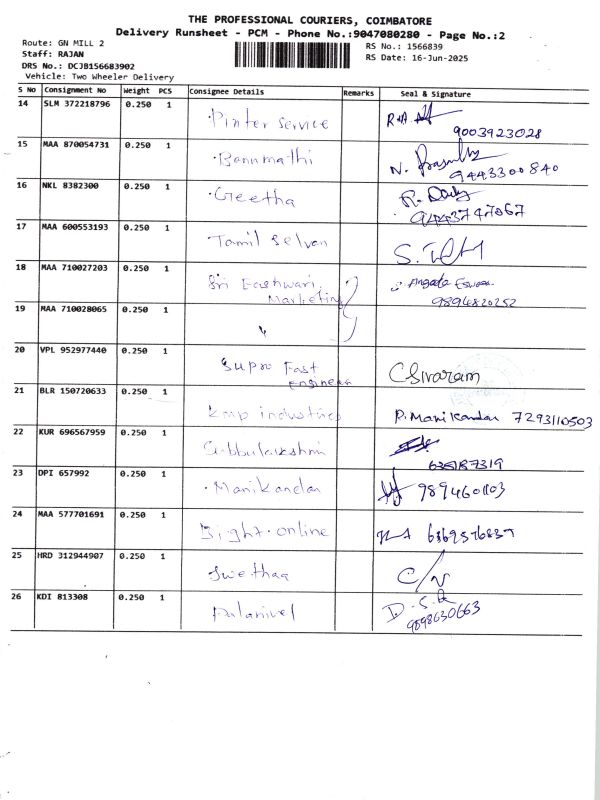 THE PROFESSIONAL COURIERS, COIMBATORE
Delivery Runsheet - PCM - Phone No.:9047080280 - Page No.:2
Route: GN MILL 2
Staff: RAJAN
DRS No.: DCJB156683902
Vehicle: Two Wheeler Delivery
RS No.: 1566839
RS Date: 16-Jun-2025
S No Consignment No Weight PCS Consignee Details Remarks Seal & Signature
14 SLM 372218796 0.250 1 Pinter service 9003923028
15 MAA 870054731 0.250 1 Banumathi 9443300840
16 NKL 8382300 0.250 1 Geetha 9443747067
17 MAA 600553193 0.250 1 Tamil Selvan
18 MAA 710027203 0.250 1 Sri Eashwari Marketing
9894820252
19 MAA 710028065 0.250 1
20 VPL 952977440 0.250 1 Supro Fast Engineers CSivaram
21 BLR 150720633 0.250 1 kmp industries P. Manikandan 7293110503
22 KUR 696567959 0.250 1 Subbulakshmi 635187319
23 DPI 657992 0.250 1 Manikandan 9894601103
24 MAA 577701691 0.250 1 online 6369376837
25 HRD 312944907 0.250 1 Swethaa C/N
26 KDI 813308 0.250 1 Palanivel 9898630663